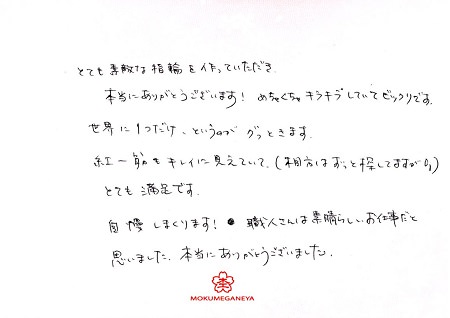 とても素敵な指輪を作っていただき
本当にありがとうございます！ めちゃくちゃキラキラしていてビックリです。
世界に1つだけ、というのが グっときます。
紅一筋もキレイに見えていて、(相方はずっと探してますが
とても満足です。
自慢しまくります！ 職人さんは素晴らしいお仕事だと
思いました、本当にありがとうございました。
MOKUMEGANEYA